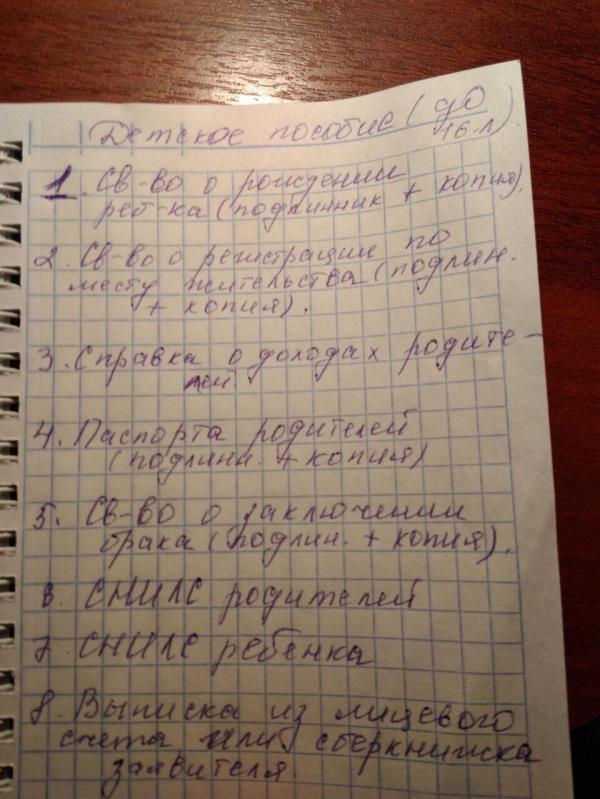 Детское пособие (до
16-л).
1. Св-во о рождении
реб-ка (подлинник + копия).
2. Св-во о регистрации по
месту жительства (подлин.
+ копия).
3. Справка о доходах родите-
лей
4. Паспорта родителей
(подлинн. + копия)
5. Св-во о заключении
брака (подлин. + копия).
6. СНИЛС родителей
7. СНИЛС ребенка
8. Выписка из лицевого
счета или сберкнижка
заявителя.